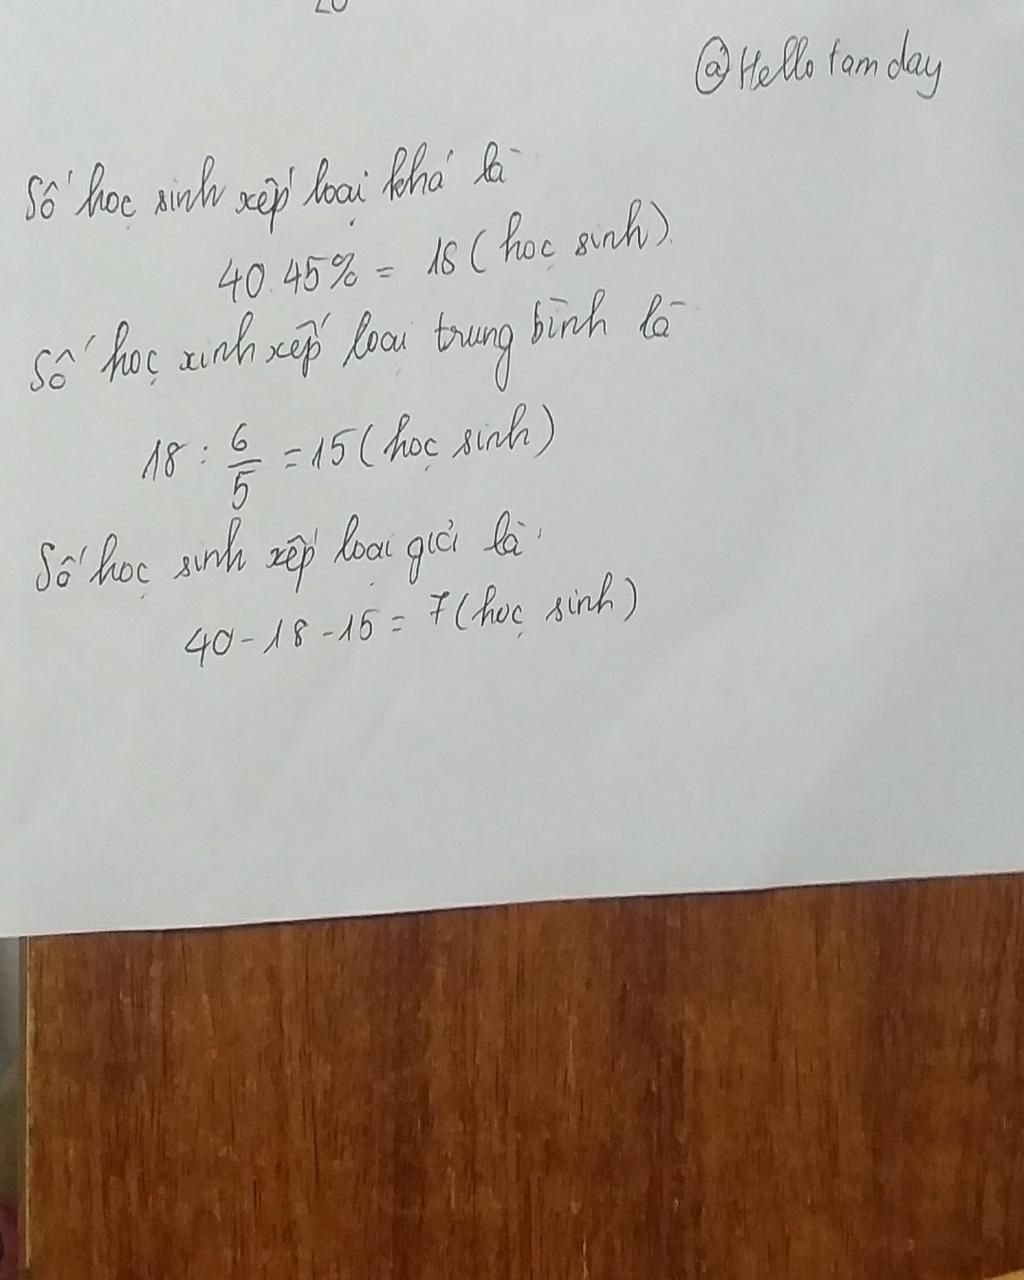 20
@Hello tam day
Số học sinh xếp loại khá là
40.45% = 18 (học sinh)
Số học xinh xếp loại trung bình là
18 : 6/5 = 15 (học sinh)
Số học sinh xếp loại giỏi là
40 - 18 - 15 = 7 (học sinh)